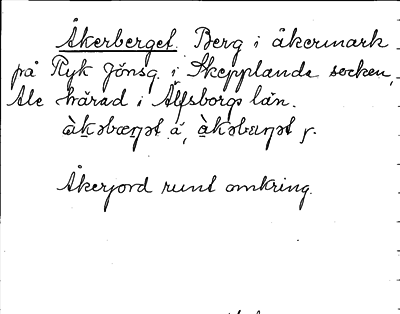 Åkerberget. Berg i åkermark
på Ryk Jönsg. i Skepplanda socken,
Ale härad i Älfsborgs län.
Åkerjord runt omkring.